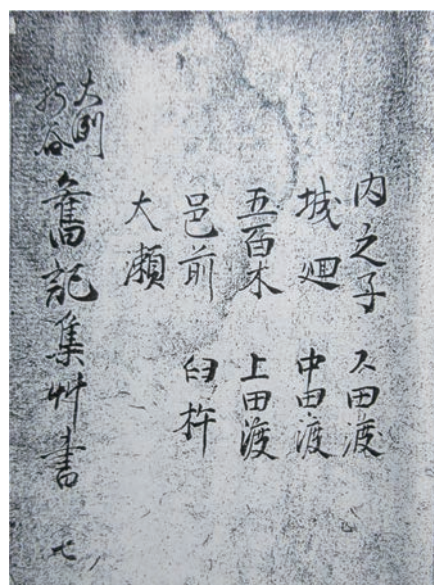 内之子 下田渡
城廻 中田渡
五百木 上田渡
邑前 臼杵
大瀬
大洲
新谷
舊記集艸書 七